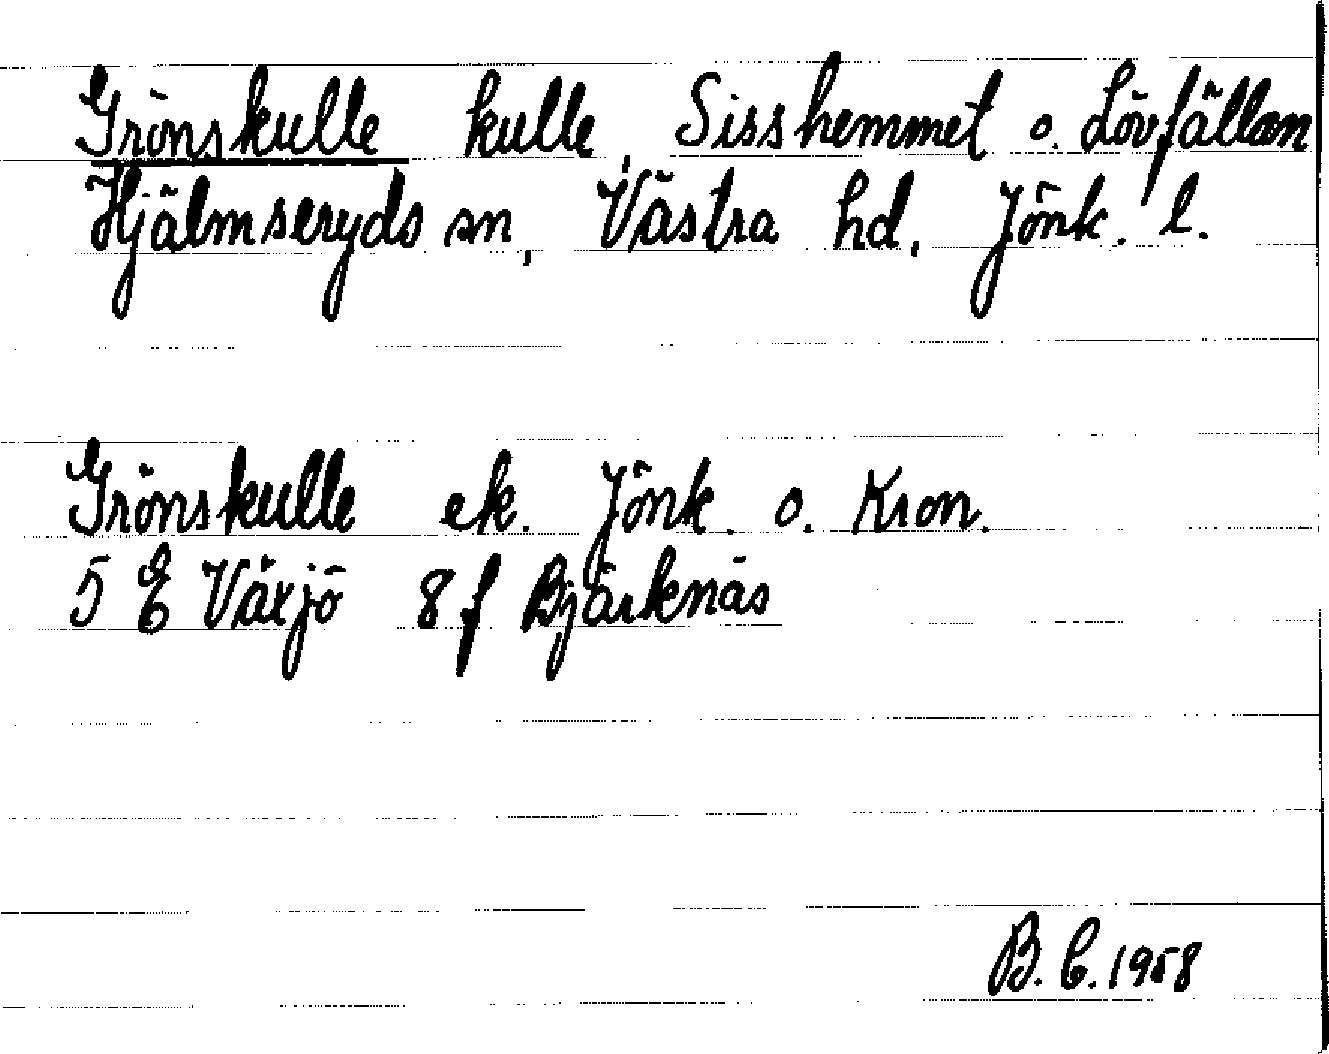 Grönskulle kulle, Sisshemmet o. Lövfällan
Hjälmseryds sn, Västra hd, Jönk. l.
Grönskulle ek. Jönk. o. Kron.
5 E Växjö 8 f Bjärknäs
B. C. 1958